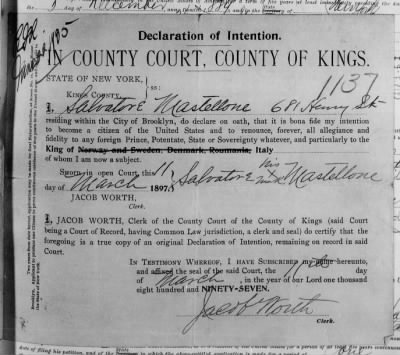 December
Declaration of Intention.
IN COUNTY COURT, COUNTY OF KINGS.
1137
STATE OF NEW YORK, ss:
KINGS COUNTY.
I, Salvatore Mastellone 681 Henry St
residing within the City of Brooklyn, do declare on oath, that it is bona fide my intention
to become a citizen of the United States and to renounce, forever, all allegiance and
fidelity to any foreign Prince, Potentate, State or Sovereignty whatever, and particularly to the
King of Norway and Sweden, Denmark, Roumania, Italy
of whom I am now a subject.
Sworn in open Court this 11
day of March 1897. Salvatore his mark Mastellone
JACOB WORTH,
Clerk.
I, JACOB WORTH, Clerk of the County Court of the County of Kings (said Court
being a Court of Record, having Common Law jurisdiction, a clerk and seal) do certify that the
foregoing is a true copy of an original Declaration of Intention, remaining on record in said
Court.
IN TESTIMONY WHEREOF, I HAVE SUBSCRIBED my name hereunto,
and affixed the seal of the said Court, the 11 day
of March, in the year of our Lord one thousand
eight hundred and NINETY-SEVEN.
Jacob Worth
Clerk.